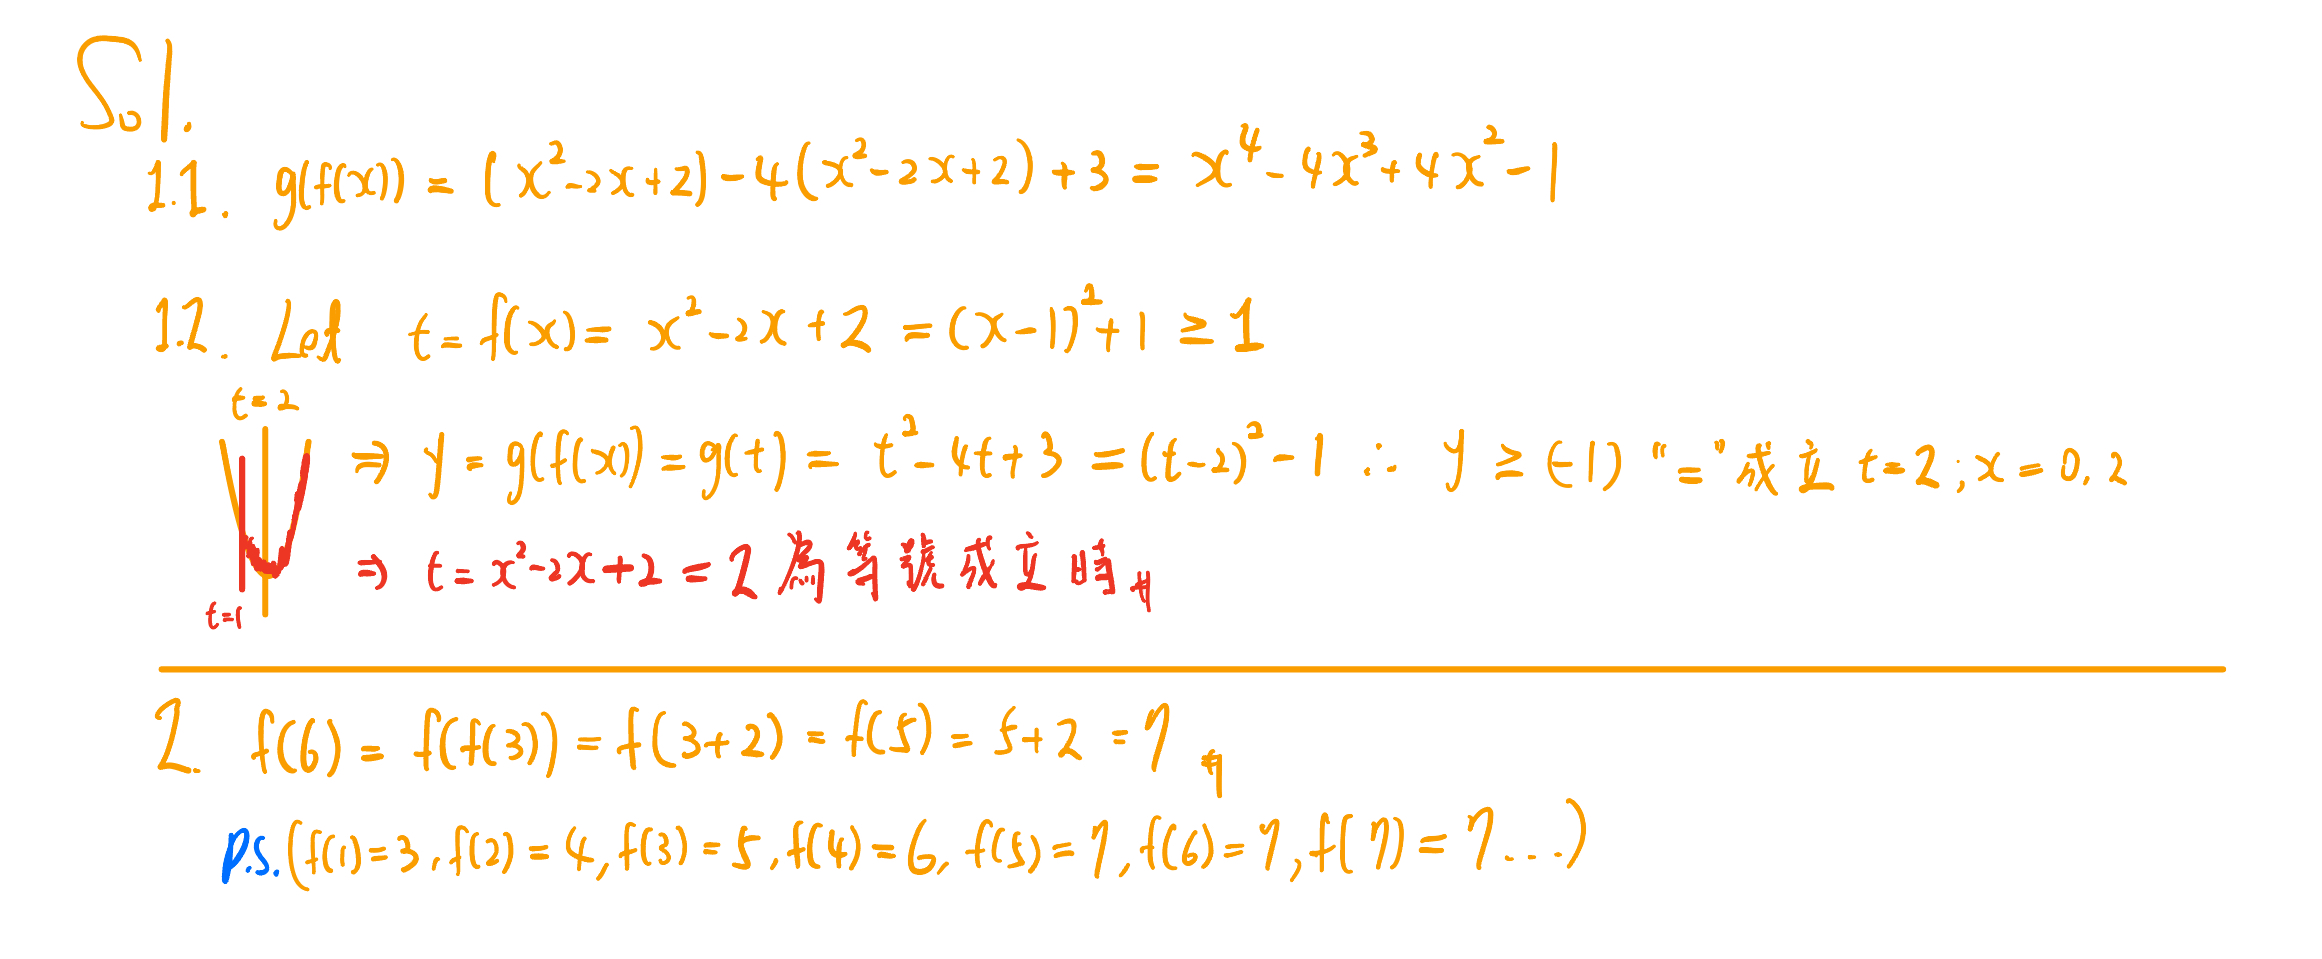 Sol.
1.1. g(f(x)) = (x²-2x+2)-4(x²-2x+2)+3 = x⁴-4x³+4x²-1
1.2. Let t=f(x)= x²-2x+2 =(x-1)²+1 ≥1
t=2
⇒ y=g(f(x))=g(t)= t²-4t+3=(t-2)²-1 ∴ y≥(-1) "="成立 t=2;x=0,2
⇒ t=x²-2x+2=2為等號成立時
t=1
2. f(6)=f(f(3))=f(3+2)=f(5)=5+2=7
P.S.(f(1)=3,f(2)=4,f(3)=5,f(4)=6,f(5)=7,f(6)=7,f(7)=7...)